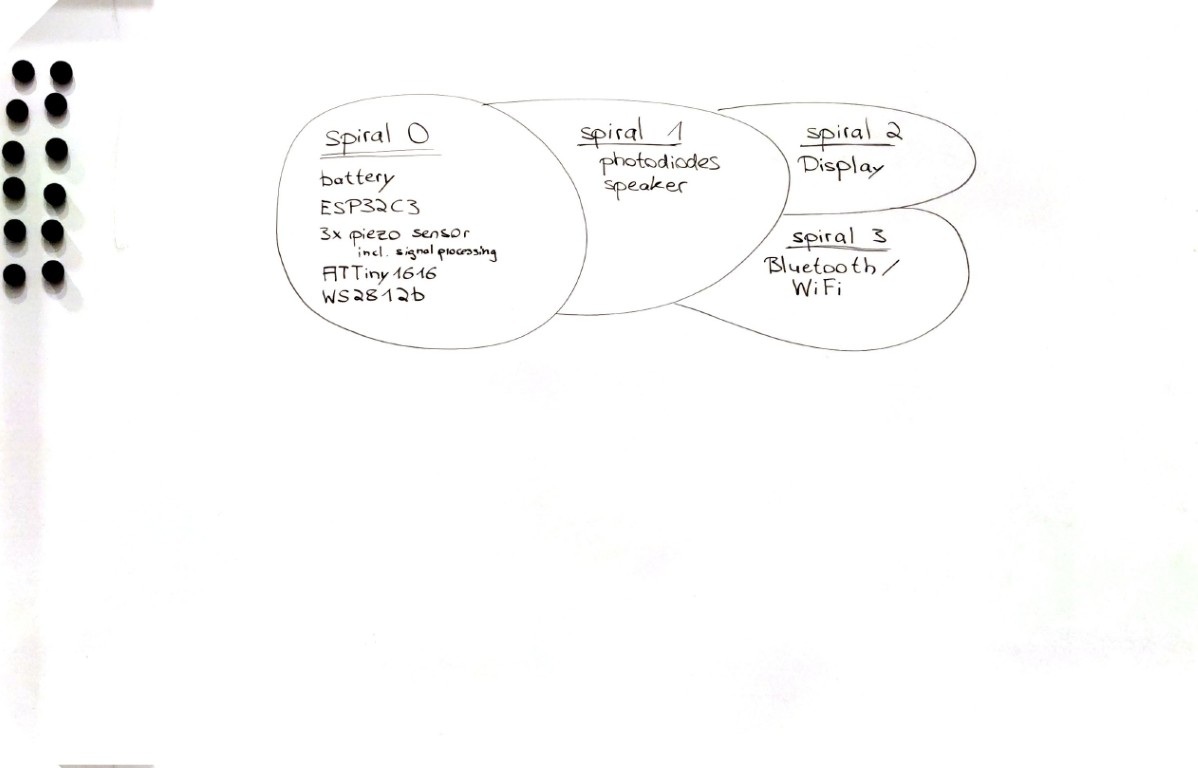 spiral 0
battery
ESP32C3
3x piezo sensor
incl. signal processing
ATTiny1616
WS2812b
spiral 1
photodiodes
speaker
spiral 2
Display
spiral 3
Bluetooth/
WiFi